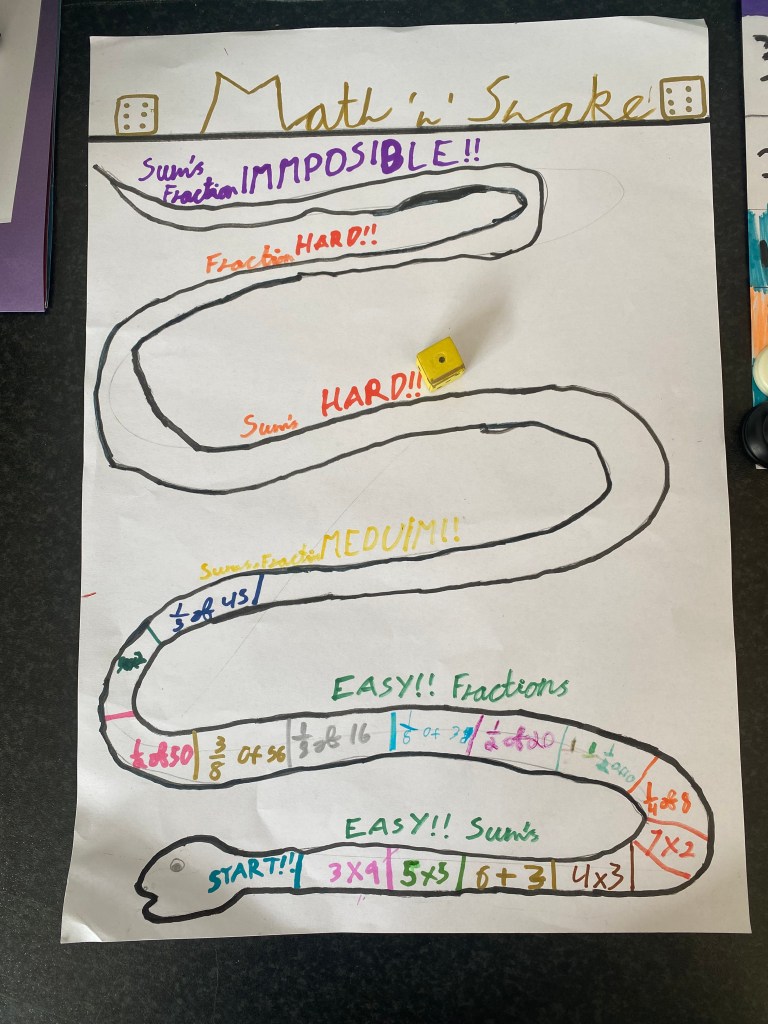 Math 'n' Snake!
Sum's
Fraction IMMPOSIBLE!!
Fraction HARD!!
Sum's HARD!!
MEDUIM!!
1/3 of 45
EASY!! Fractions
of 50
3/8 of 56
1/3 of 16
1/2 of 20
1/4 of 8
EASY!! Sum's
7x2
START!!
3x4
5x5
6+3
4x3